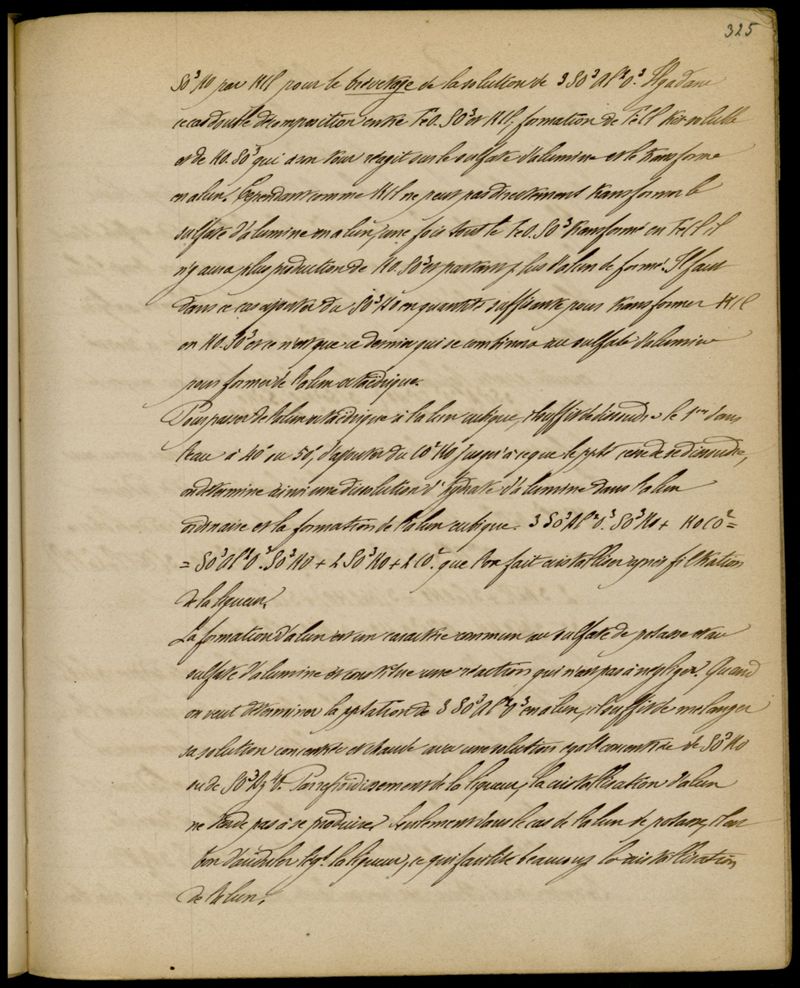 325
SO³KO par KCl pour le brevetage de la solution de 3SO³Al²O³. Il y a dans
ce cas double décomposition entre FeO.SO³ et KCl; formation de FeCl très soluble
et de KO.SO³ qui à son tour réagit sur le sulfate d'alumine et le transforme
en alun. Cependant comme KCl ne peut pas directement transformer le
sulfate d'alumine en alun, une fois tout le FeO.SO³ transformé en FeCl il
n'y aura plus production de KO.SO³ et partant plus d'alun de formé. Il faut
dans ce cas ajouter du SO³HO en quantité suffisante pour transformer KCl
en KO.SO³ et ce n'est que ce dernier qui se combinera au sulfate d'alumine
pour former de l'alun octaédrique.
Pour passer de l'alun octaédrique à l'alun cubique, il suffit de dissoudre le 1er dans
l'eau à 40° ou 50°, d'ajouter du CO²KO jusqu'à ce que le ppté cesse de se dissoudre,
on détermine ainsi une dissolution d'hydrate d'alumine dans l'alun
ordinaire et la formation de l'alun cubique. 3SO³Al²O³.SO³KO + KOCO² =
= SO³Al²O³.SO³KO + 2SO³KO + 2CO², que l'on fait cristalliser après filtration
de la liqueur.
La formation d'alun est un caractère commun au sulfate de potasse et au
sulfate d'alumine et constitue une réaction qui n'est pas à négliger. Quand
on veut déterminer la pptation de 3SO³Al²O³ en alun, il suffit de mélanger
sa solution concentrée et chaude avec une solution concentrée de SO³KO
ou de SO³AzH⁴O. Par refroidissement de la liqueur, la cristallisation d'alun
ne tarde pas à se produire. Seulement dans le cas de l'alun de potasse, il est
bon d'aciduler la liqueur, ce qui facilite beaucoup la cristallisation
de l'alun.